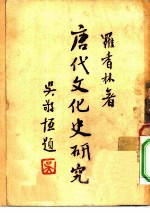 羅香林著
唐代文化史研究
吳敬恆題